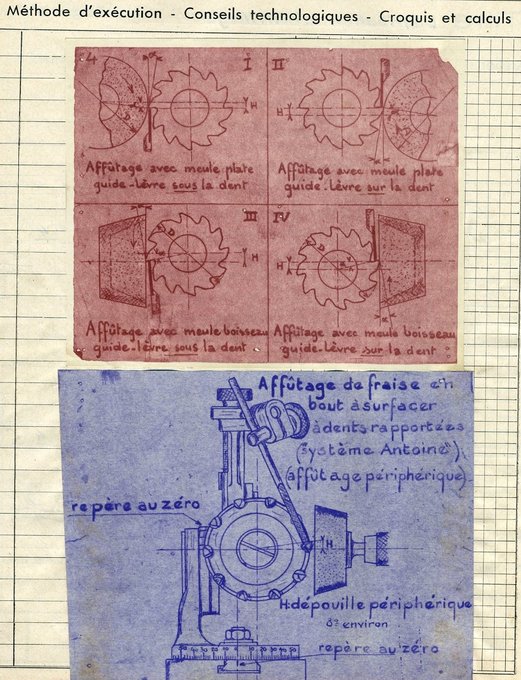 Méthode d'exécution - Conseils technologiques - Croquis et calculs
I
II
H
H
Affûtage avec meule plate
guide-lèvre sous la dent
Affûtage avec meule plate
guide-lèvre sur la dent
III
IV
D
D
H
H
Affûtage avec meule boisseau
guide-lèvre sous la dent
Affûtage avec meule boisseau
guide-lèvre sur la dent
Affûtage de fraise en
bout à surfacer
à dents rapportées
("système Antoine")
(affûtage périphérique)
repère au zéro
H
H: dépouille périphérique
8° environ
repère au zéro